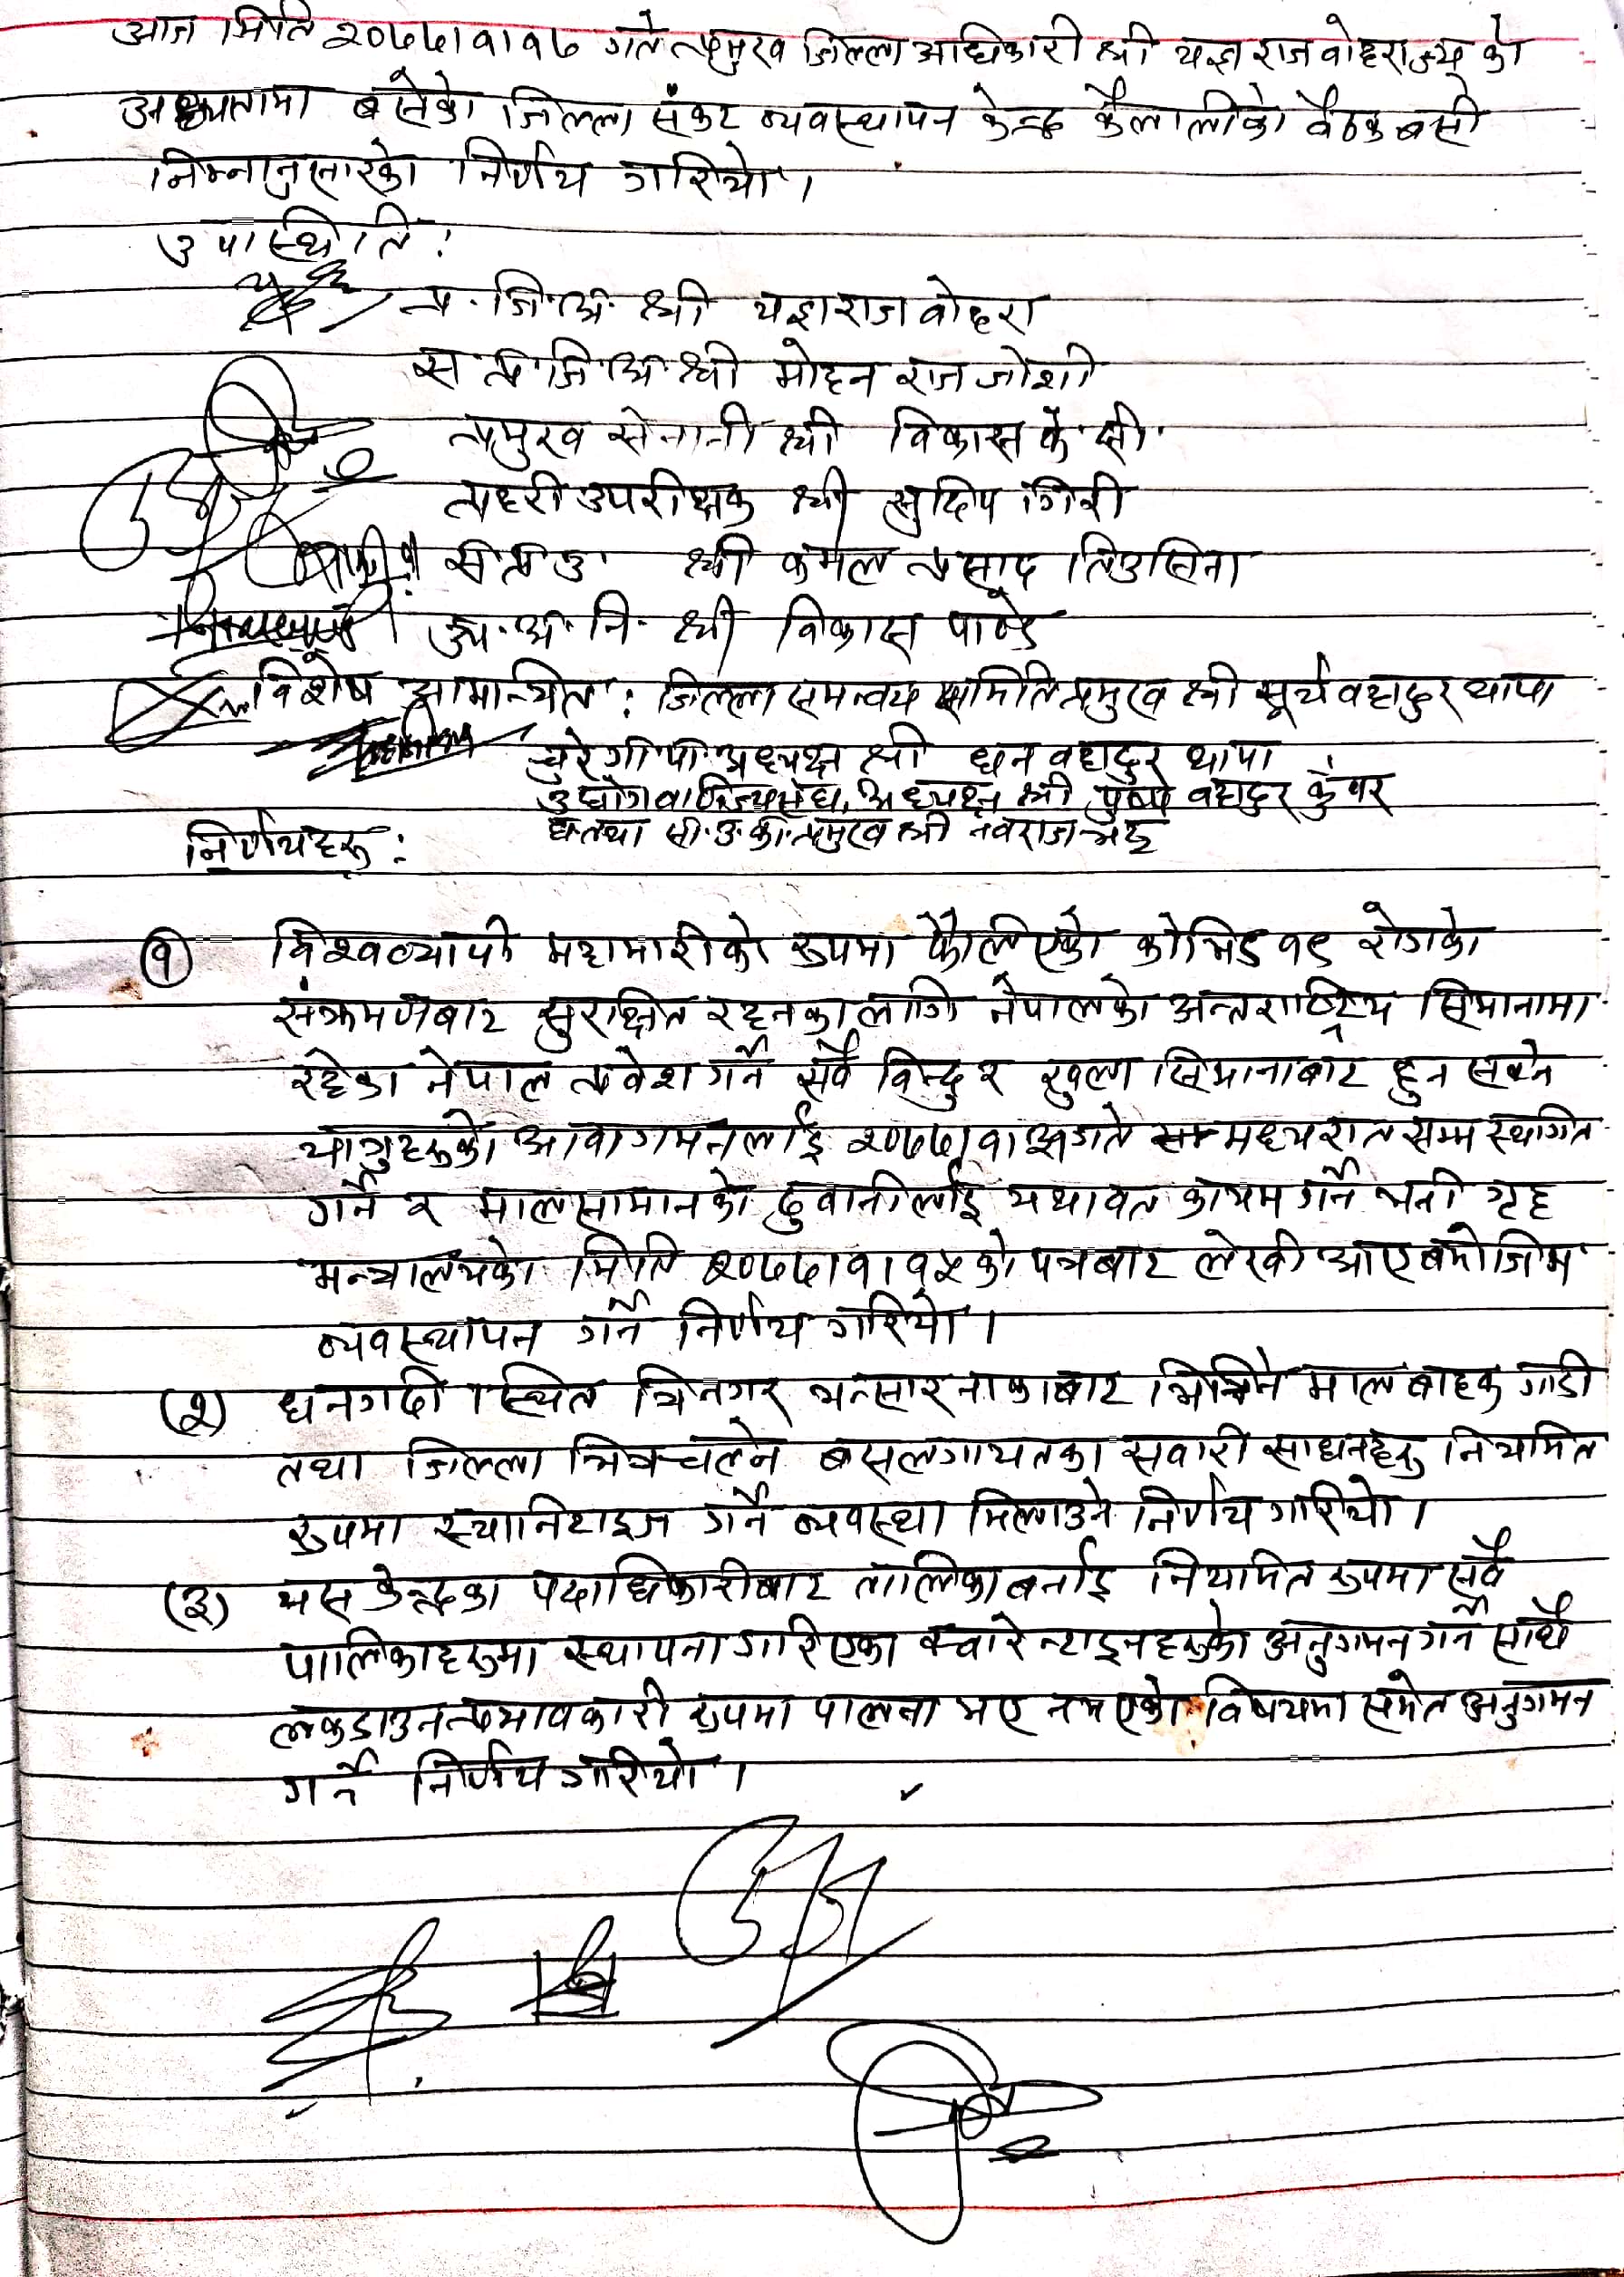 आज मिति २०७७।१।१७ गते प्रमुख जिल्ला अधिकारी श्री यज्ञराज बोहराज्यू को
अध्यक्षतामा बसेको जिल्ला संकट व्यवस्थापन केन्द्र कैलालीको बैठक बसी
निम्नानुसारको निर्णय गरियो ।
उपास्थिति :
प्र.जि.अ. श्री यज्ञराज बोहरा
स.प्र.जि.अ. श्री मोहन राज जोशी
प्रमुख सेनानी श्री विकास के.सी.
प्रहरी उपरीक्षक श्री सुदिप गिरी
स.प्र.उ. श्री कमल प्रसाद तिउसिना
अ.नि. श्री विकास पाण्डे
विशेष आमान्त्रीत : जिल्ला समन्वय समिति प्रमुख श्री सूर्य वहादुर थापा
चुरे गा.पा. अध्यक्ष श्री धन वहादुर थापा
उद्योग वाणिज्य संघ, अध्यक्ष श्री पुष्प वहादुर कुँवर
तथा सी.उ.का. प्रमुख श्री नवराज भट्ट
निर्णयहरू :
(१) विश्वव्यापी महामारीको रुपमा फैलिएको कोभिड १९ रोगको
संक्रमणबाट सुरक्षित रहनका लागि नेपालको अन्तराष्ट्रिय सिमानामा
रहेका नेपाल प्रवेश गर्ने सबै विन्दु र खुल्ला सिमानाबाट हुन सक्ने
यात्रुहरुको आवागमनलाई गते मध्यरात सम्म स्थागित
गर्ने र मालसामानको ढुवानीलाई यथावत कायम गर्ने भनी गृह
मन्त्रालयको मिति २०७७।१।१५ को पत्रबाट लेखी आए बमोजिम
व्यवस्थापन गर्ने निर्णय गरियो ।
(२) धनगढी स्थित त्रिनगर भन्सार नाकाबाट भित्रिने मालबाहक गाडी
तथा जिल्ला भित्र चल्ने बस लगायतका सवारी साधनहरु नियमित
रुपमा स्यानिटाइज गर्ने व्यवस्था मिलाउने निर्णय गरियो ।
(३) यस केन्द्रका पदाधिकारीबाट तालिका बनाई नियमित रुपमा सबै
पालिकाहरुमा स्थापना गरिएका क्वारेन्टाइनहरुको अनुगमन गर्ने साथै
लकडाउन प्रभावकारी रुपमा पालना भए नभएको विषयमा समेत अनुगमन
गर्ने निर्णय गरियो ।